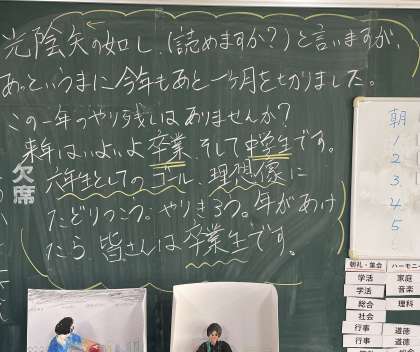 光陰矢の如し、(読めますか?)と言いますが、
あっという間に今年もあと一ヶ月をきりました。
この一年のやり残しはありませんか?
来年はいよいよ卒業、そして中学生です。
六年生としてのゴール、理想像に
たどりつこう。やりきろう。年があけ
たら、皆さんは卒業生です。
欠席
朝
1
2
3
4
5
朝礼・集会
学活
学活
総合
社会
行事
行事
ハーモニー
家庭
音楽
理科
道徳
道徳